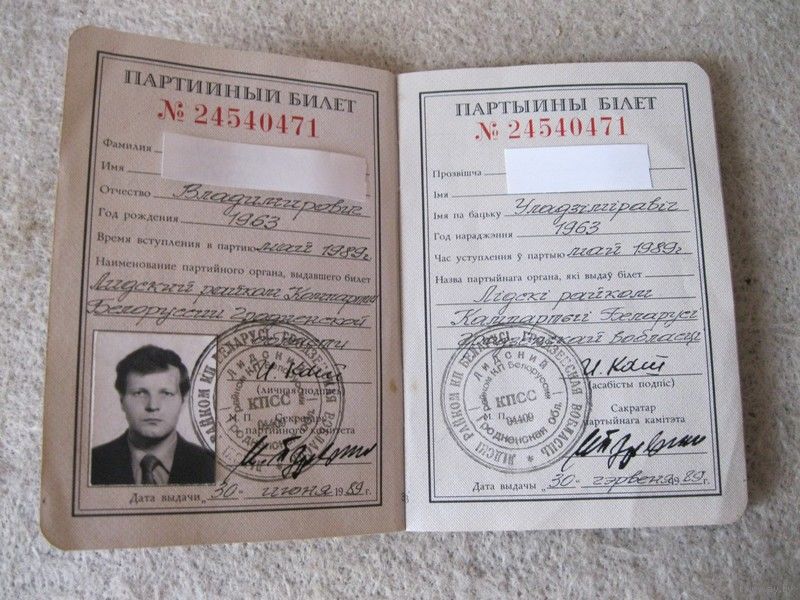 ПАРТИЙНЫЙ БИЛЕТ
№ 24540471
Фамилия
Имя
Отчество Владимирович
Год рождения 1963
Время вступления в партию май 1989г
Наименование партийного органа, выдавшего билет
Лидский райком Компартии
Белоруссии Гродненской
области
(Личная подпись)
М П. Секретарь
партийного комитета
Дата выдачи „30" июня 1989 г.
РАЙКОМ КП БЕЛАРУСІ ГРОДЗЕНСКАЯ
Лидский
райком КП Белоруссии
КПСС
04409
Гродненская
ПАРТЫЙНЫ БІЛЕТ
№ 24540471
Прозвішча
Імя
Імя па бацьку Уладзіміравіч
Год нараджэння 1963
Час уступлення ў партыю май 1989г
Назва партыйнага органа, які выдаў білет
Лідскі райком
Кампартыі Беларусі
Гродзенскай вобласці
(асабісты подпіс)
М П. Сакратар
партыйнага камітэта
Дата выдачы „30" чэрвеня 1989 г.
ЛІДСКІ РАЙКОМ КП БЕЛАРУСІ ГРОДЗЕНСКАЯ ВОБЛАСЦЬ
Лидский
райком КП Белоруссии
КПСС
04409
Гродненская обл